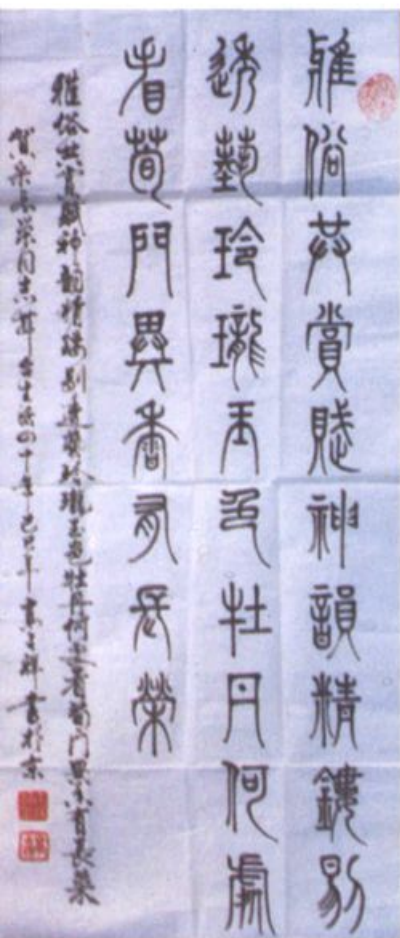 雅俗共賞賦神韻精鏤剔
透藝玲瓏玉色牡丹何處
看荀門異香有長榮
雅俗共賞賦神韻精鏤剔透藝玲瓏玉色牡丹何處看荀門異香有長榮
賀宋長榮同志舞台生活四十年己巳年 書於京